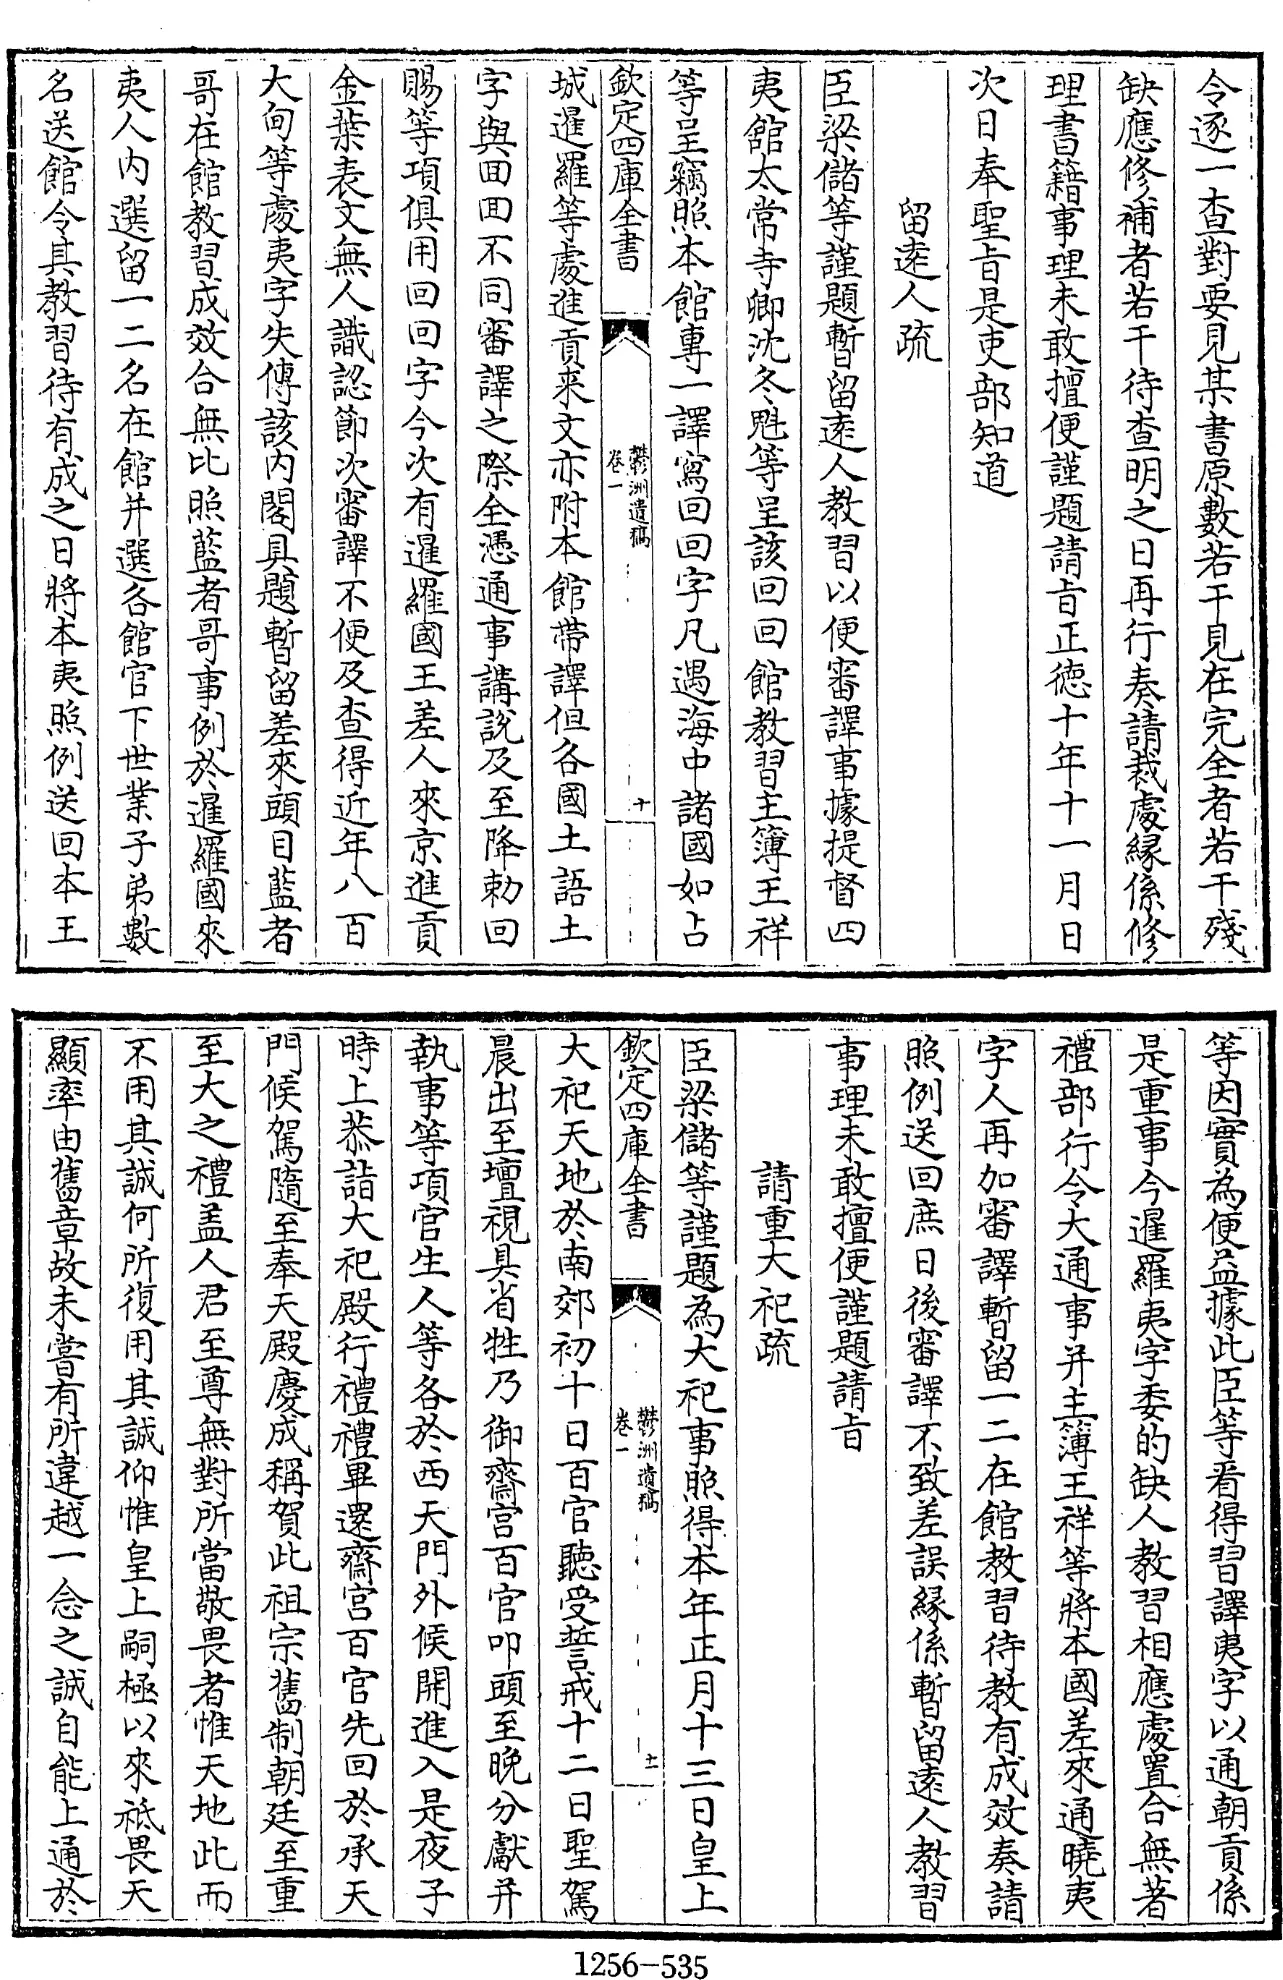 令逐一查對要見某書原數若干見在完全者若干殘
缺應修補者若干待查明之日再行奏請裁處緣係修
理書籍事理未敢擅便謹題請旨正德十年十一月日
次日奉聖旨是吏部知道
留遠人疏
臣梁儲等謹題暫留遠人教習以便審譯事據提督四
夷館太常寺卿沈冬魁等呈該回回館教習主簿王祥
等呈竊照本館專一譯寫回回字凡遇海中諸國如占
欽定四庫全書
鬱洲遺稿
卷一
十
城暹羅等處進貢來文亦附本館帶譯但各國土語土
字與回回不同審譯之際全憑通事講說及至降勅回
賜等項俱用回回字今次有暹羅國王差人來京進貢
金葉表文無人識認節次審譯不便及查得近年八百
大甸等處夷字失傳該內閣具題暫留差來頭目藍者
哥在館教習成效合無比照藍者哥事例於暹羅國來
夷人內選留一二名在館并選各館官下世業子弟數
名送館令其教習待有成之日將本夷照例送回本王
等因實為便益據此臣等看得習譯夷字以通朝貢係
是重事今暹羅夷字委的缺人教習相應處置合無著
禮部行令大通事并主簿王祥等將本國差來通曉夷
字人再加審譯暫留一二在館教習待教有成效奏請
照例送回庶日後審譯不致差誤緣係暫留遠人教習
事理未敢擅便謹題請旨
請重大祀疏
臣梁儲等謹題為大祀事照得本年正月十三日皇上
欽定四庫全書
鬱洲遺稿
卷一
十一
大祀天地於南郊初十日百官聽受誓戒十二日聖駕
晨出至壇視具省牲乃御齋宮百官叩頭至晚分獻并
執事等項官生人等各於西天門外候開進入是夜子
時上恭詣大祀殿行禮禮畢還齋宮百官先回於承天
門候駕隨至奉天殿慶成稱賀此祖宗舊制朝廷至重
至大之禮盖人君至尊無對所當敬畏者惟天地此而
不用其誠何所復用其誠仰惟皇上嗣極以來祗畏天
顯率由舊章故未嘗有所違越一念之誠自能上通於
1256-535